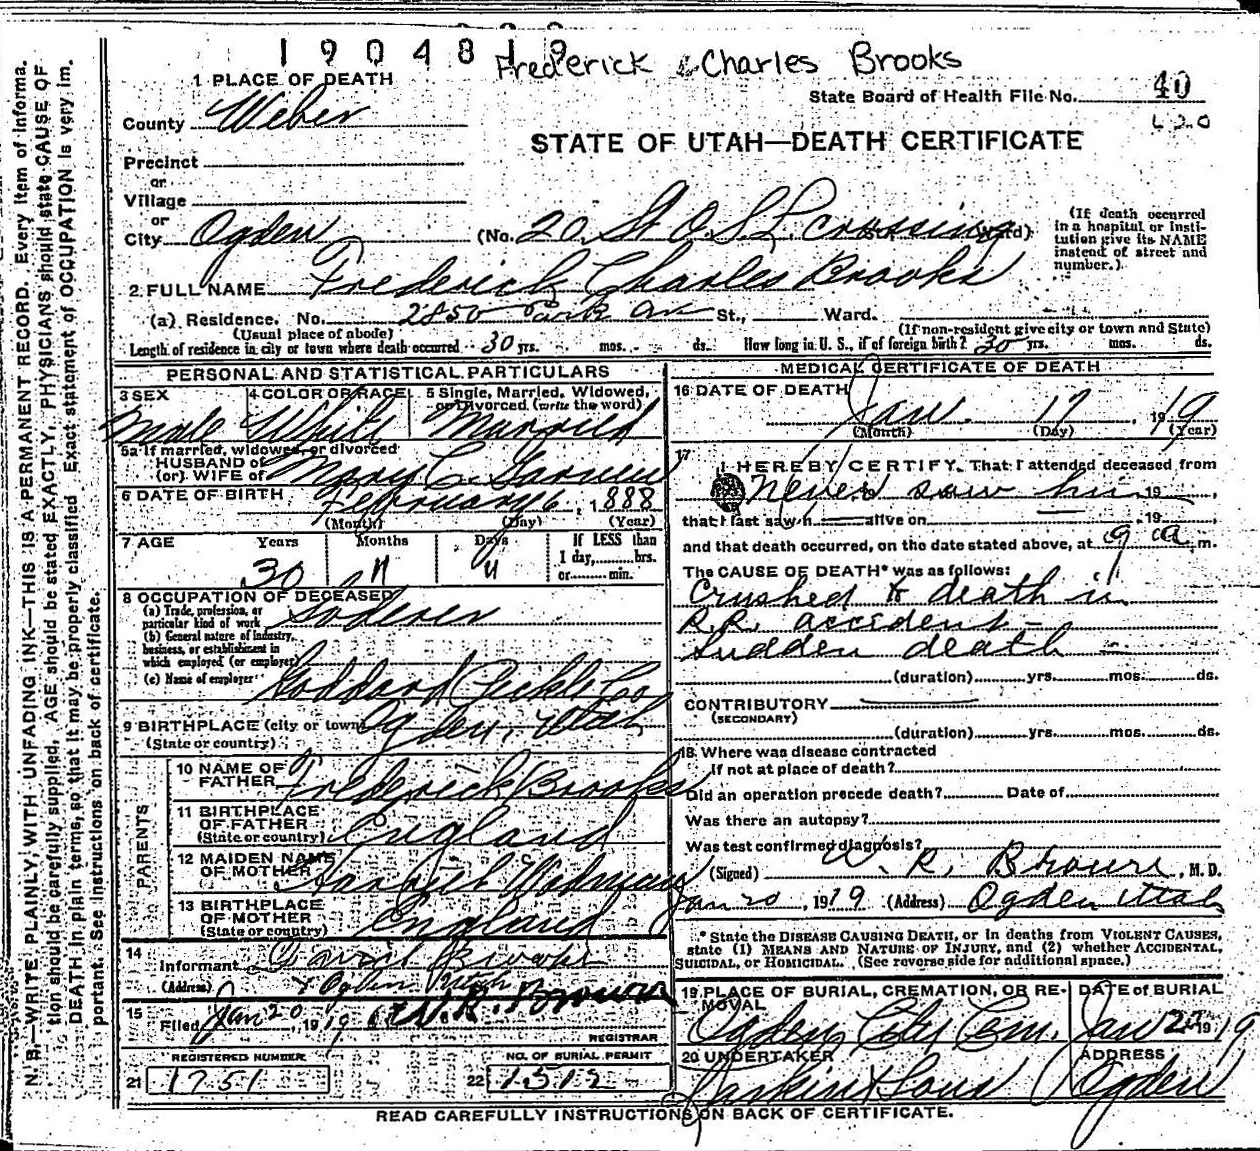 1904819
Frederick Charles Brooks
1 PLACE OF DEATH
State Board of Health File No. 40
County Weber
620
STATE OF UTAH—DEATH CERTIFICATE
Precinct
or
Village
or
City Ogden (No. 20 St O.S.L. crossing Ward)
(If death occurred in a hospital or institution give its NAME instead of street and number.)
2 FULL NAME Frederick Charles Brooks
(a) Residence. No. 2850 Park Av St., Ward.
(Usual place of abode) (If non-resident give city or town and State)
Length of residence in city or town where death occurred 30 yrs. mos. ds. How long in U. S., if of foreign birth? 30 yrs. mos. ds.
PERSONAL AND STATISTICAL PARTICULARS
3 SEX Male
4 COLOR OR RACE White
5 Single, Married, Widowed, or Divorced (write the word) Married
5a If married, widowed, or divorced
HUSBAND of
(or) WIFE of Mary C.
6 DATE OF BIRTH February 6, 1888
(Month) (Day) (Year)
7 AGE Years Months Days If LESS than
1 day, brs.
or min.
30 11 11
8 OCCUPATION OF DECEASED
(a) Trade, profession, or
particular kind of work Soderer
(b) General nature of industry,
business, or establishment in
which employed (or employer)
(c) Name of employer Goddard Pickle Co
9 BIRTHPLACE (city or town) Ogden, Utah
(State or country)
PARENTS
10 NAME OF
FATHER Frederick Brooks
11 BIRTHPLACE
OF FATHER England
(State or country)
12 MAIDEN NAME
OF MOTHER Harriet
13 BIRTHPLACE
OF MOTHER England
(State or country)
14
Informant Brooks
(Address) Ogden Utah
15
Filed Jan 20, 1919 W.R. Brown
REGISTRAR
REGISTERED NUMBER
21 1751
NO. OF BURIAL PERMIT
22 1512
MEDICAL CERTIFICATE OF DEATH
16 DATE OF DEATH
Jan. 17 1919
(Month) (Day) (Year)
17
I HEREBY CERTIFY. That I attended deceased from
Never saw him 19
that I last saw h alive on , 19
and that death occurred, on the date stated above, at 9 a m.
The CAUSE OF DEATH* was as follows:
Crushed to death in
R.R. accident –
Sudden death –
(duration) yrs. mos. ds.
CONTRIBUTORY
(SECONDARY)
(duration) yrs. mos. ds.
18 Where was disease contracted
If not at place of death?
Did an operation precede death? Date of
Was there an autopsy?
Was test confirmed diagnosis?
(Signed) W. R. Brown, M. D.
Jan 20, 1919 (Address) Ogden Utah
* State the DISEASE CAUSING DEATH, or in deaths from VIOLENT CAUSES,
state (1) MEANS AND NATURE OF INJURY, and (2) whether ACCIDENTAL,
SUICIDAL, OR HOMICIDAL. (See reverse side for additional space.)
19 PLACE OF BURIAL, CREMATION, OR RE-
MOVAL
DATE of BURIAL
Ogden City Cem. Jan 1919
20 UNDERTAKER ADDRESS
Larkin & Sons Ogden
READ CAREFULLY INSTRUCTIONS ON BACK OF CERTIFICATE.
N. B.—WRITE PLAINLY, WITH UNFADING INK—THIS IS A PERMANENT RECORD. Every item of informa-
tion should be carefully supplied. AGE should be stated EXACTLY. PHYSICIANS should state CAUSE OF
DEATH in plain terms, so that it may be properly classified. Exact statement of OCCUPATION is very im-
portant. See instructions on back of certificate.